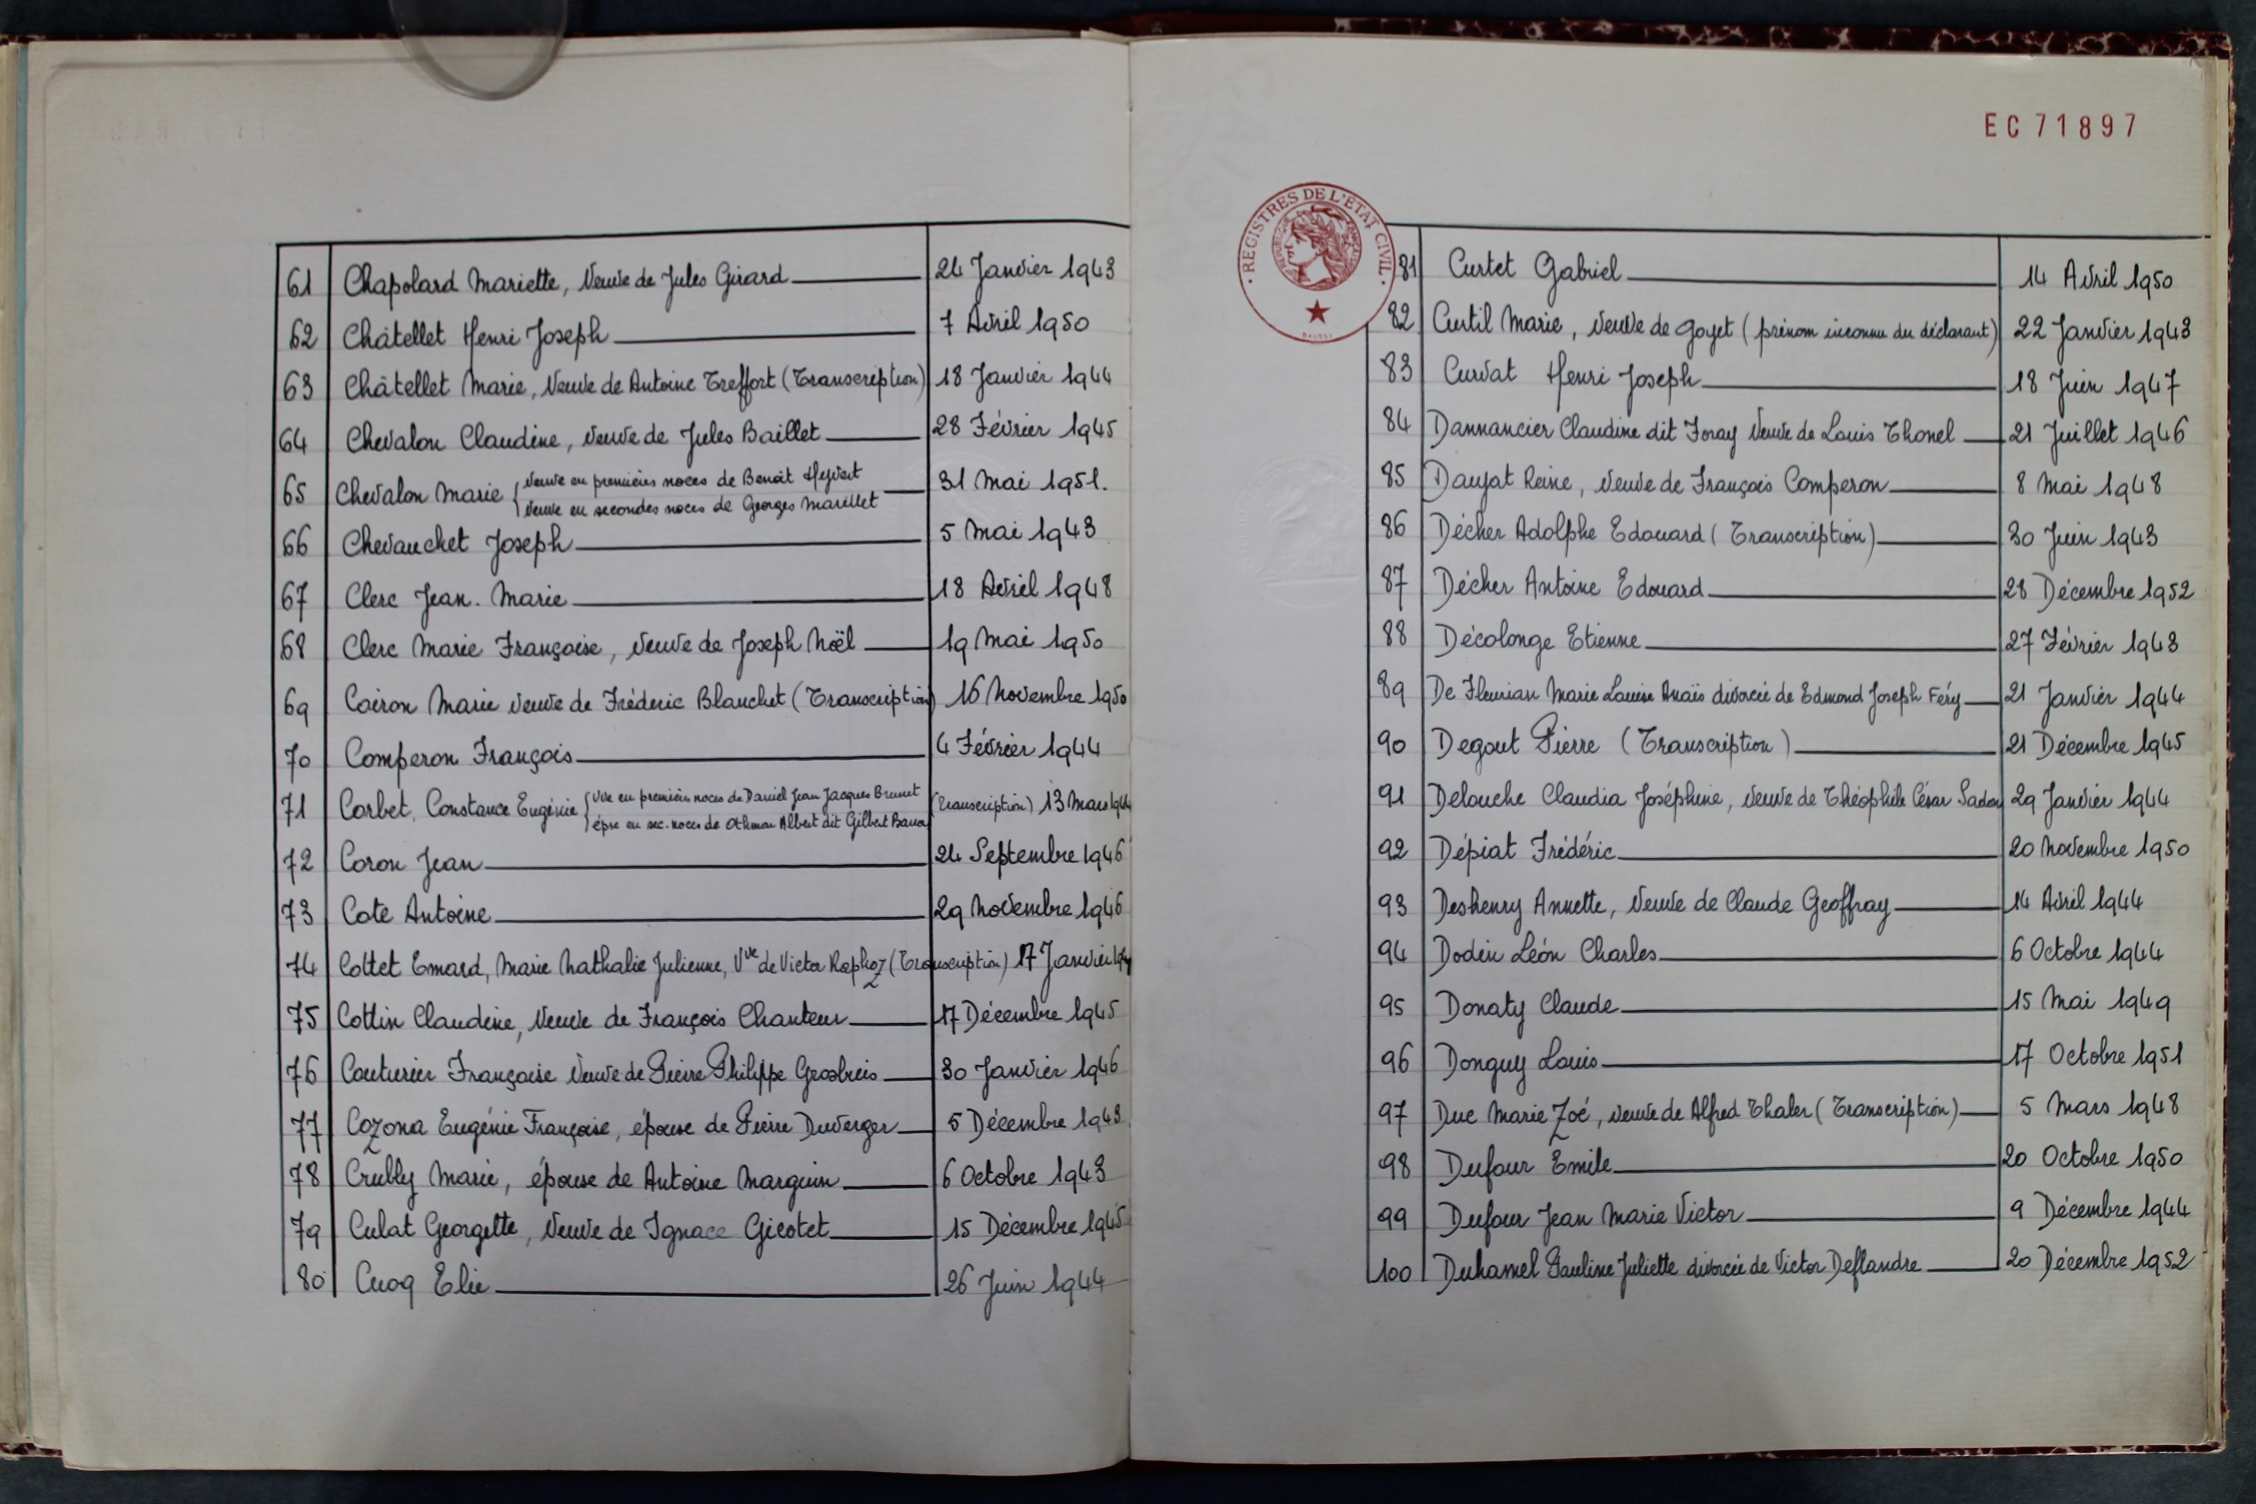 61 Chapolard Mariette, Veuve de Jules Girard 24 Janvier 1943
62 Châtellet Henri Joseph 7 Avril 1950
63 Châtellet Marie, Veuve de Antoine Treffort (Transcription) 18 Janvier 1944
64 Chevalon Claudine, veuve de Jules Baillet 28 Février 1945
65 Chevalon Marie { Veuve en premières noces de Benoît Heyvert
Veuve en secondes noces de Georges Marillet 31 Mai 1951.
66 Chevauchet Joseph 5 Mai 1943
67 Clerc Jean. Marie 18 Avril 1948
68 Clerc Marie Françoise, veuve de Joseph Noël 19 Mai 1950
69 Coiron Marie veuve de Fréderic Blanchet (Transcription) 16 Novembre 1950
70 Comperon François 4 Février 1944
71 Corbet, Constance Eugénie { Vve en premières noces de Daniel Jean Jacques Brunet
épse en sec. noces de Othman Albert dit Gilbert (transcription) 13 Mars
72 Coron Jean 24 Septembre 1946
73 Cote Antoine 29 Novembre 1946
74 Cottet Emard, Marie Nathalie Julienne, Vve de Victor Raphoz (Transcription) 17 Janvier
75 Cottin Claudine, Veuve de François Chanteur 17 Décembre 1945
76 Couturier Françoise Veuve de Pierre Philippe Grosbuis 30 Janvier 1946
77 Cozona Eugénie Françoise, épouse de Pierre Duverger 5 Décembre 1943
78 Crubly Marie, épouse de Antoine Marguin 6 Octobre 1943
79 Culat Georgette, Veuve de Ignace Gicotet 15 Décembre 1945
80 Cuoq Elie 26 Juin 1944
EC 71897
REGISTRES DE L'ETAT CIVIL
81 Curtet Gabriel 14 Avril 1950
82 Curtil Marie, veuve de Goyet (prénom inconnu du déclarant) 22 Janvier 1943
83 Curvat Henri Joseph 18 Juin 1947
84 Dannancier Claudine dit Foray Veuve de Louis Thonel 21 Juillet 1946
85 Daujat Reine, veuve de François Comperon 8 Mai 1948
86 Décher Adolphe Edouard (Transcription) 30 Juin 1943
87 Décher Antoine Edouard 28 Décembre 1952
88 Décolonge Etienne 27 Février 1943
89 De Fleurian Marie Louise Anaïs divorcée de Edmond Joseph Féry 21 Janvier 1944
90 Degout Pierre (Transcription) 21 Décembre 1945
91 Delouche Claudia Joséphine, veuve de Théophile César Sadon 29 Janvier 1944
92 Dépiat Frédéric 20 Novembre 1950
93 Deshenry Annette, Veuve de Claude Geoffray 14 Avril 1944
94 Dodin Léon Charles 6 Octobre 1944
95 Donaty Claude 15 Mai 1949
96 Donguy Louis 17 Octobre 1951
97 Duc Marie Zoé, veuve de Alfred Thaler (Transcription) 5 Mars 1948
98 Dufour Emile 20 Octobre 1950
99 Dufour Jean Marie Victor 9 Décembre 1944
100 Duhamel Pauline Juliette divorcée de Victor Deflandre 20 Décembre 1952